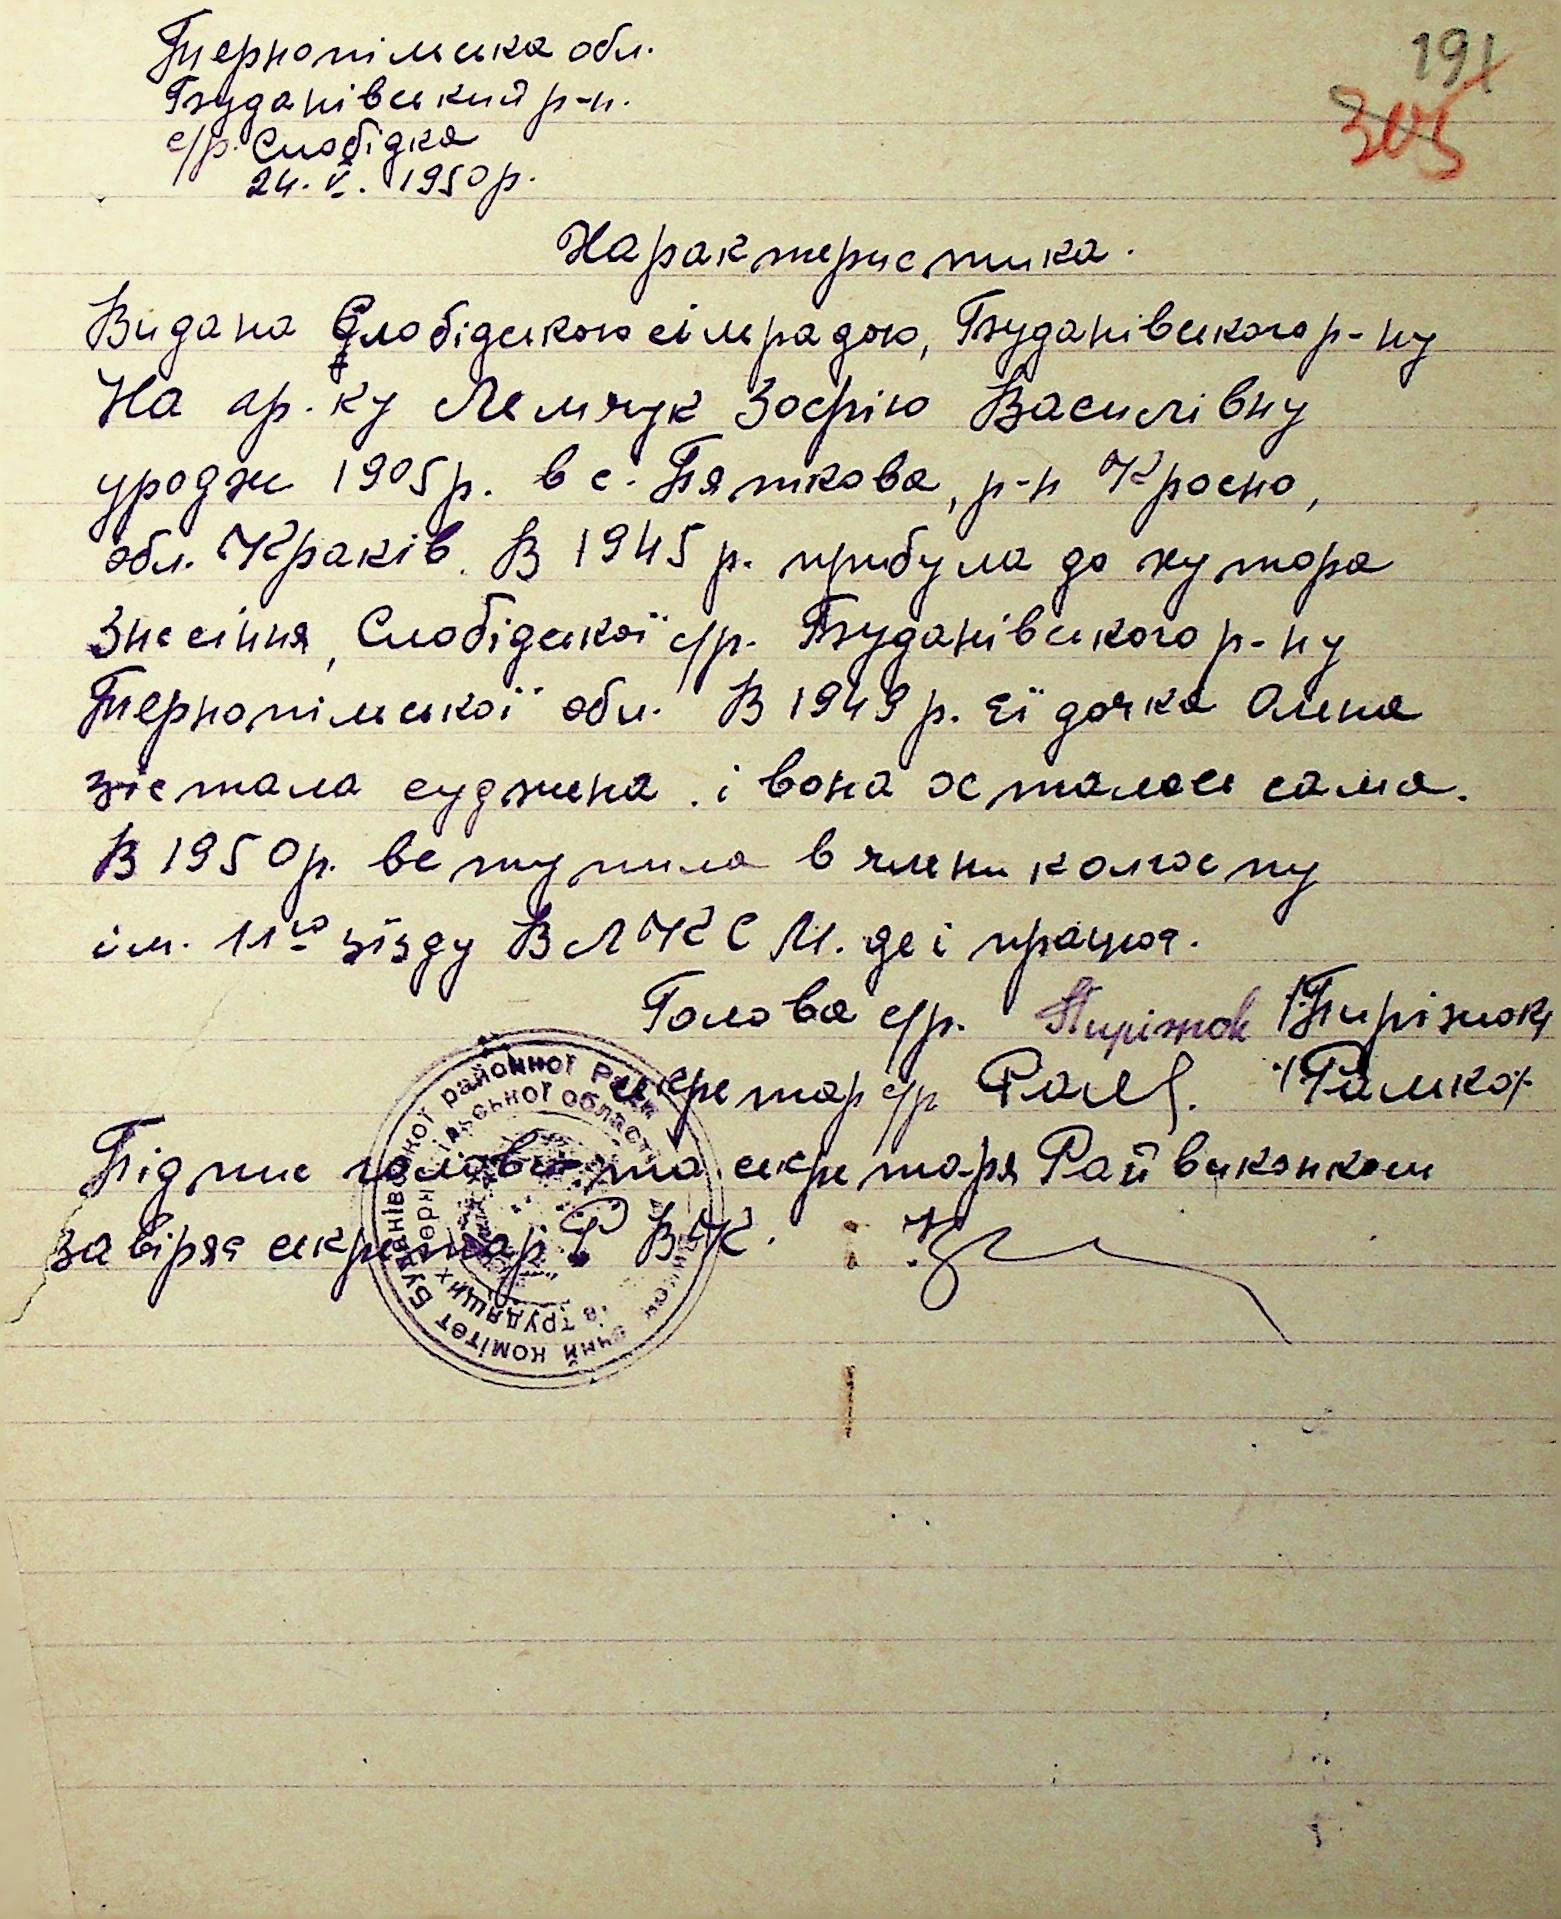 191
305
Тернопільська обл.
Буданівський р-н.
с/р. Слобідка
24. V. 1950р.
Характеристика.
Видана Слобідською сільрадою, Буданівського р-ну
На гр. ку Лемчук Зофію Василівну
уродж 1905р. в с. Пяткова, р-н Кросно,
обл. Краків. В 1945 р. прибула до хутора
Знесіння, Слобідської с/р. Буданівського р-ну
Тернопільської обл. В 1949 р. її дочка Олена
зістала суджена. і вона осталась сама.
В 1950р. вступила в члени колгоспу
ім. 11го зїзду ВЛКСМ. де і працює.
Голова с/р. Пиріжок /Пиріжок/
Секретар с/р /Ралко/
Підпис голови та секретаря Райвиконком
завіряє секретар РВК.
комітет Буданівської районної Ради
трудящих області